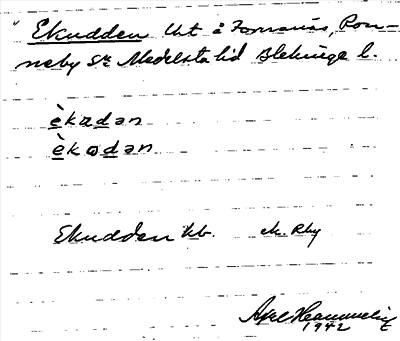 Ekudden Unt å Tornanäs, Ron-
neby Sn Medelsta hd Blekinge l.
èkadan
èkodan
Ekudden Kb. ek. Rby
Axel
1942